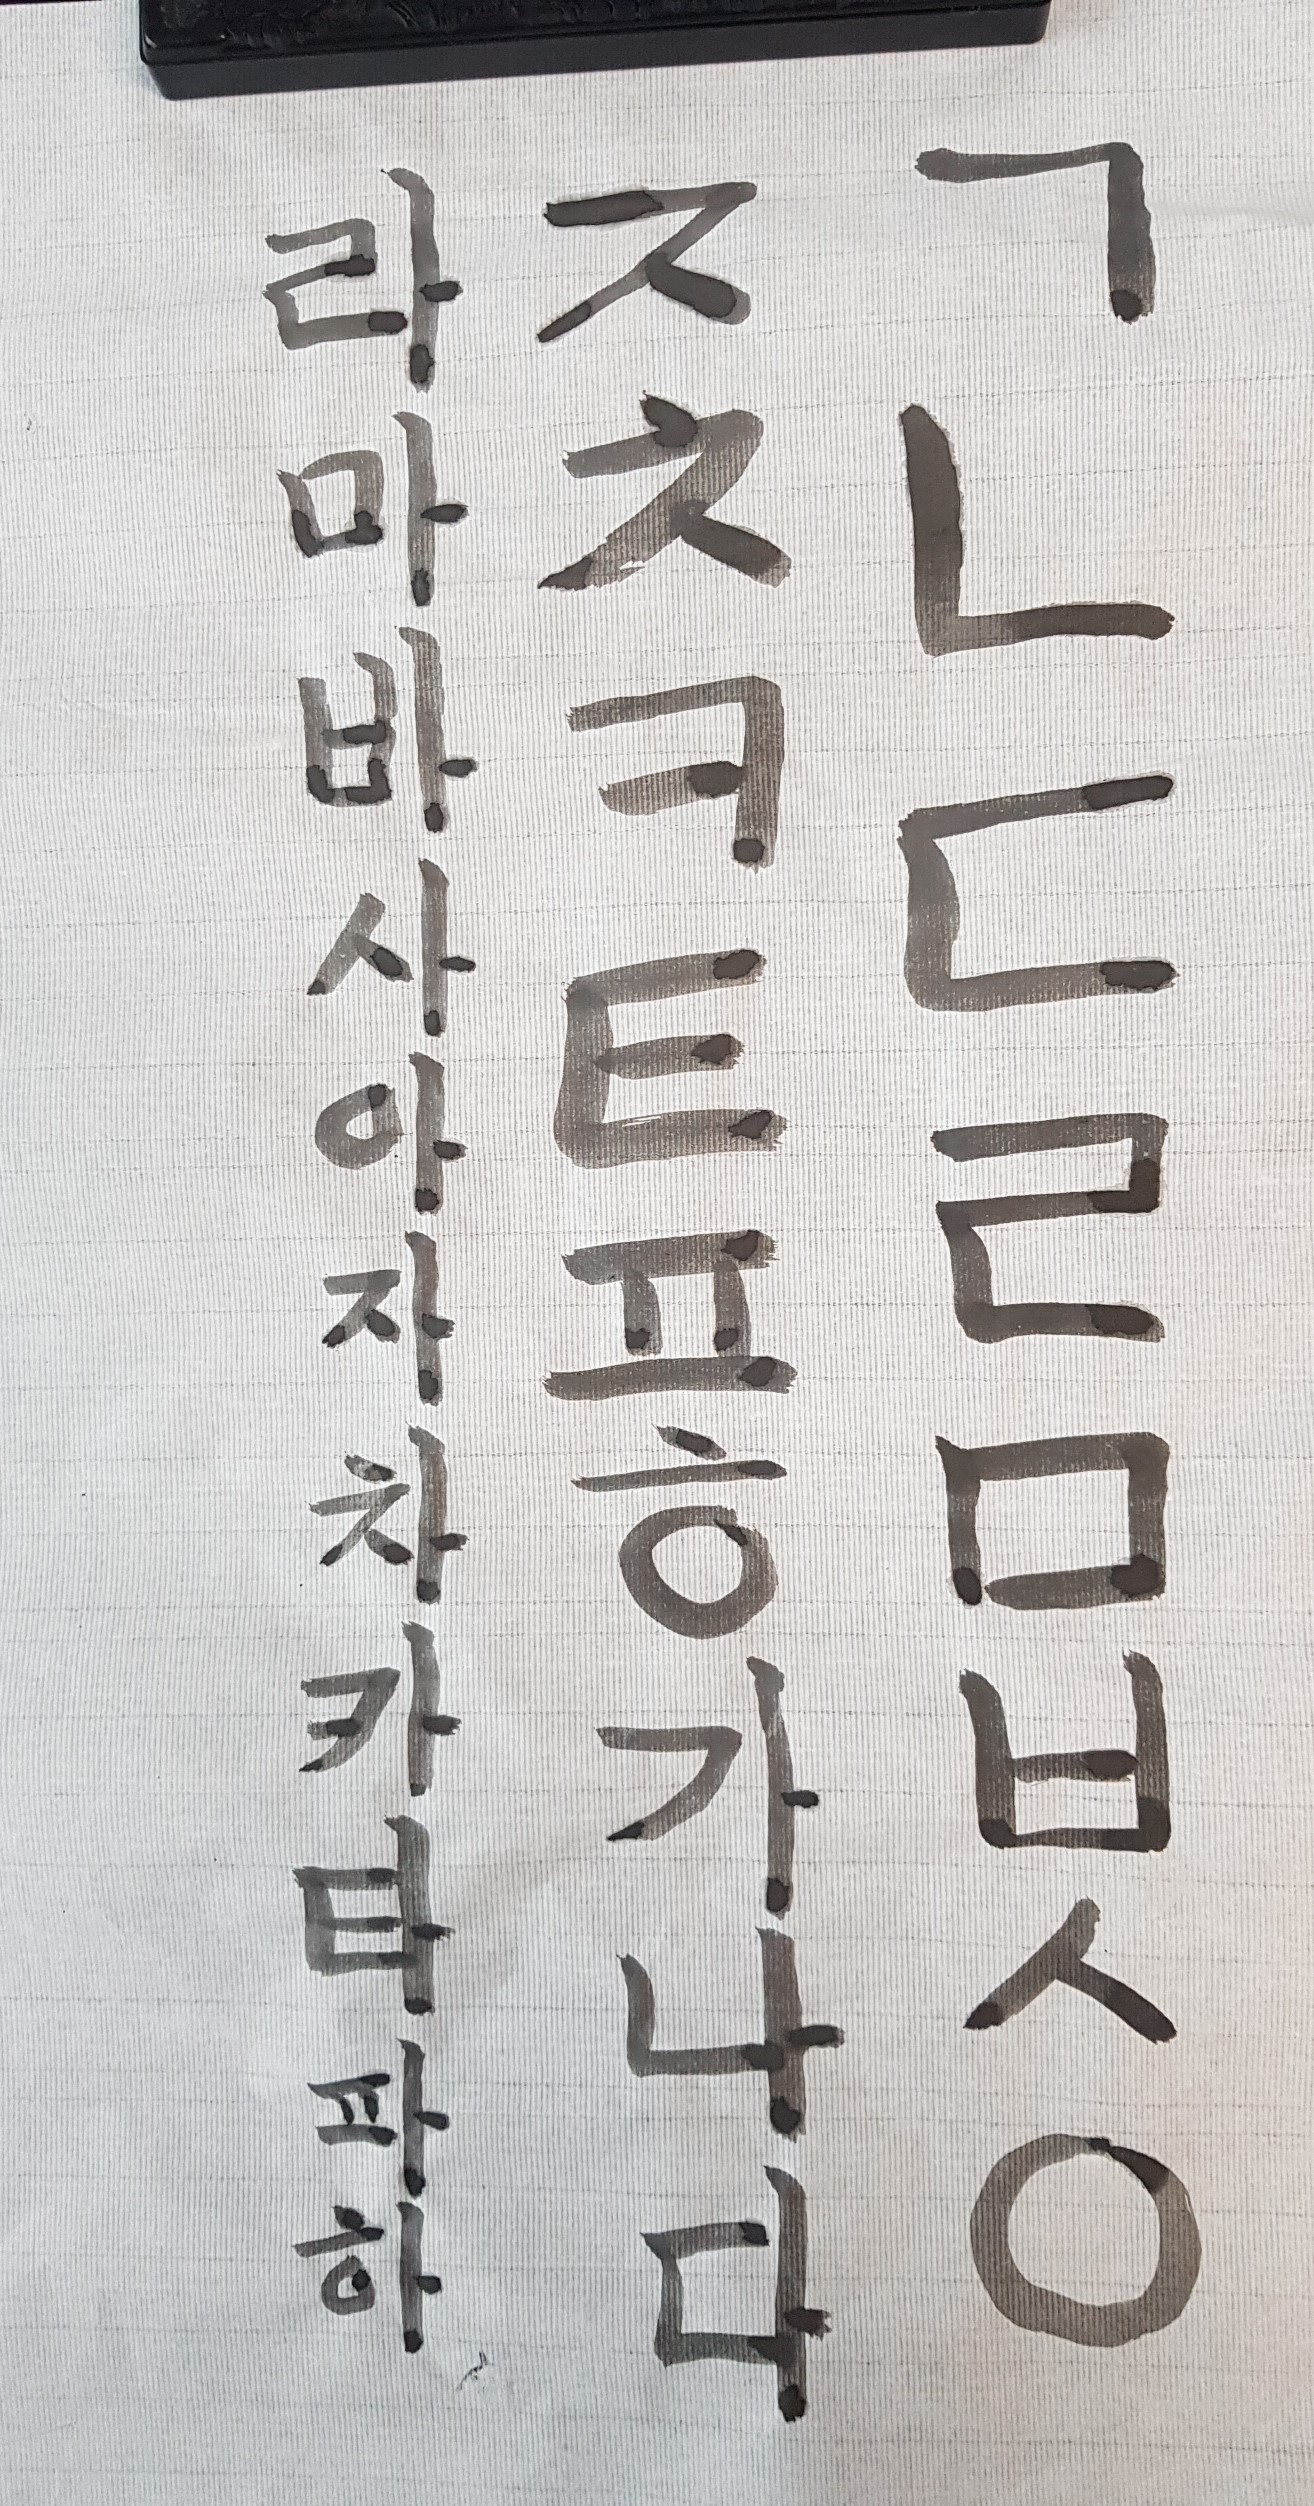 ㄱㄴㄷㄹㅁㅂㅅㅇ
ㅈㅊㅋㅌㅍㅎ가나다
라마바사아자차카타파하